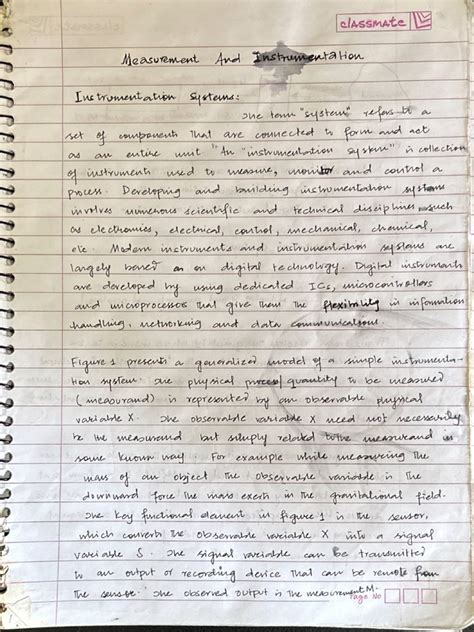 classmate
Measurement And Instrumentation
Instrumentation Systems:
The term "system" refers to a
set of components that are connected to form and act
as an entire unit "An "instrumentation system" is collection
of instruments used to measure, monitor and control a
process. Developing and building instrumentation systems
involves numerous scientific and technical disciplines such
as electronics, electrical, control, mechanical, chemical,
etc. Modern instruments and instrumentation systems are
largely based on digital technology. Digital instruments
are developed by using dedicated ICs, microcontrollers
and microprocessors that give them the flexibility in information
handling, networking and data communications.
Figure 1 presents a generalized model of a simple instrumenta-
tion system. The physical quantity to be measured
(measurand) is represented by an observable physical
variable X. The observable variable X need not necessarily
be the measurand but simply related to the measurand in
some known way. For example while measuring the
mass of an object the observable variable is the
downward force the mass exerts in the gravitational field.
The key functional element in figure 1 is the sensor,
which converts the observable variable X into a signal
variable S. The signal variable can be transmitted
to an output or recording device that can be remote from
the sensor. The observed output is the measurement M.
Page No